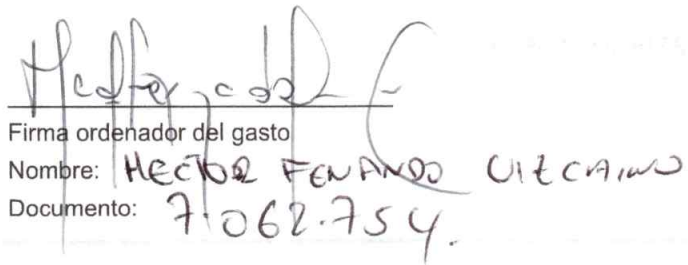 Firma ordenador del gasto
Nombre: HECTOR FENANDO VIZCAINO
Documento: 7.062.754.